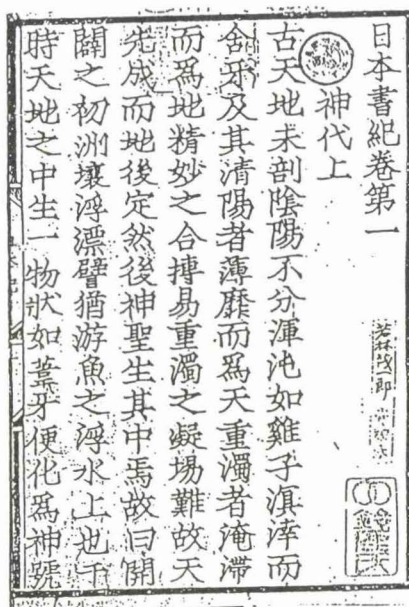 日本書紀卷第一
神代上
古天地未剖陰陽不分渾沌如雞子溟涬而
含牙及其清陽者薄靡而爲天重濁者淹滯
而爲地精妙之合摶易重濁之凝埸難故天
先成而地後定然後神聖生其中焉故曰開
闢之初洲壤浮漂譬猶游魚之浮水上也于
時天地之中生一物狀如葦牙便化爲神號